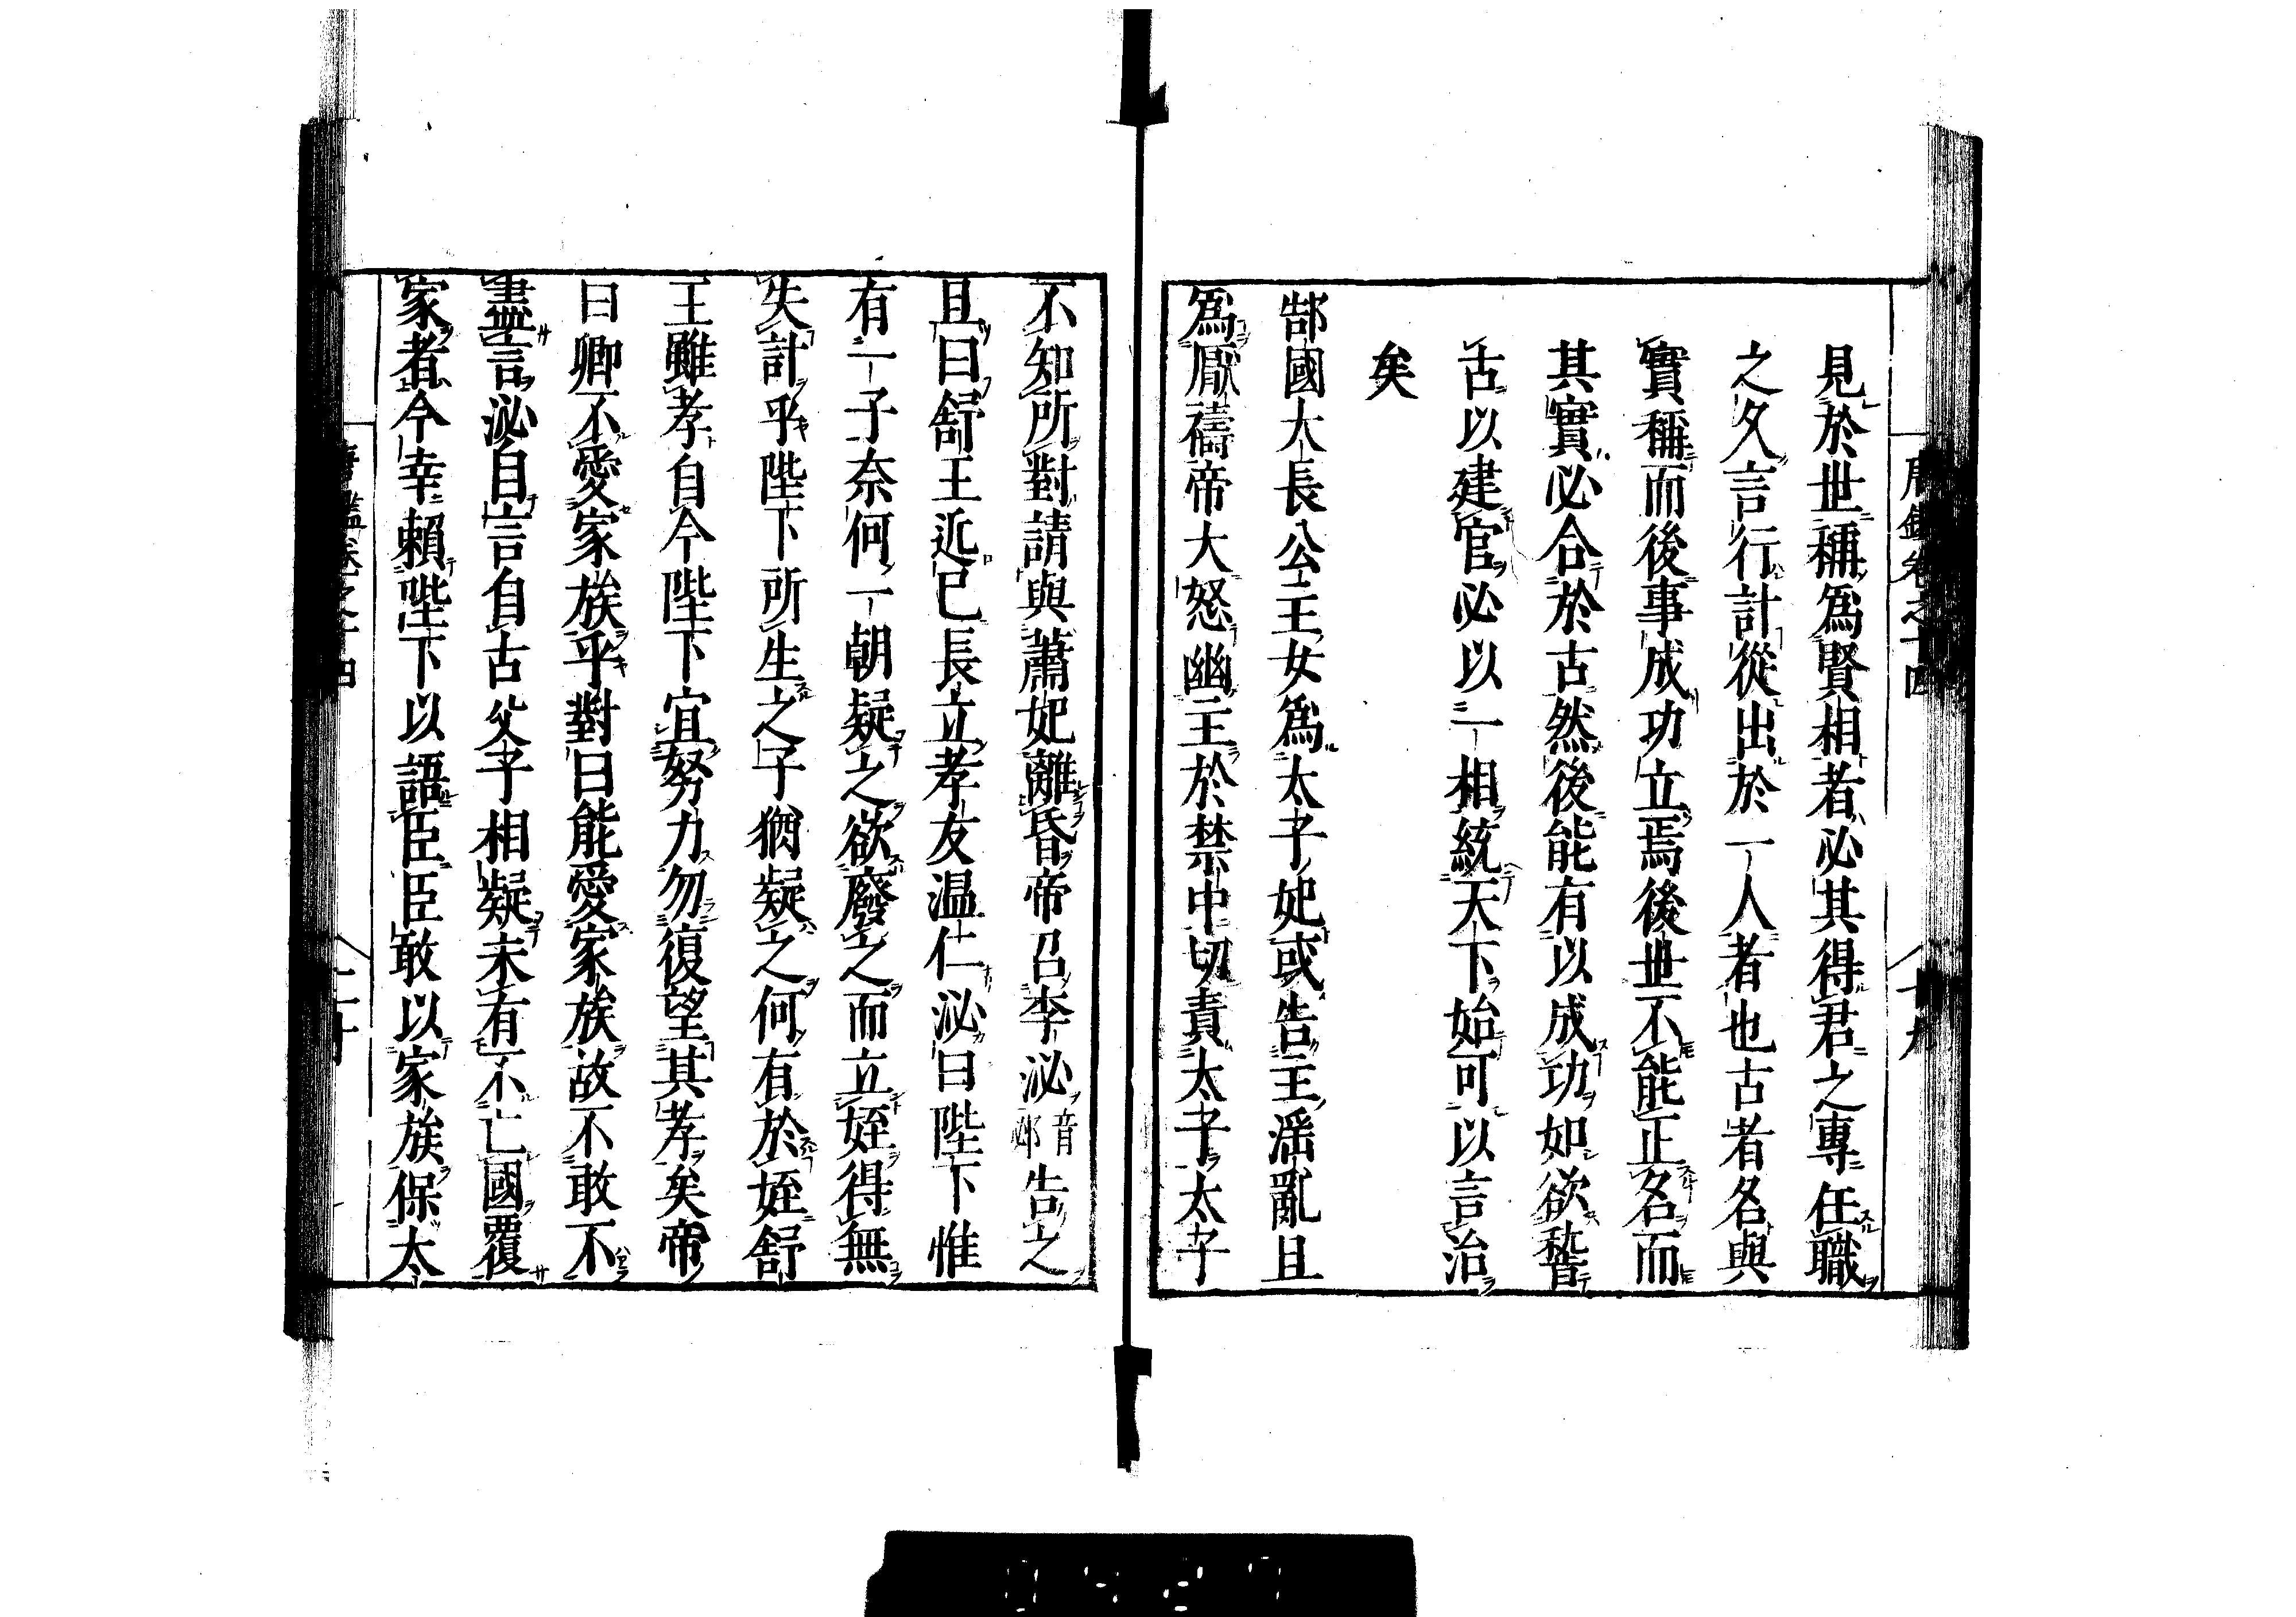 唐鑑卷之十四 十九
見於世稱爲賢相者必其得君之專任職
之久言行計從出於一人者也古者名與
實稱而後事成功立焉後世不能正名而
其實必合於古然後能有以成功如欲稽
古以建官必以一相統天下始可以言治
矣
郜國大長公主女爲太子妃或告主淫亂且
爲厭禱帝大怒幽主於禁中切責太子太子
不知所對請與蕭妃離昏帝召李泌音邲告之
且曰舒王近已長立孝友温仁泌曰陛下惟
有一子奈何一朝疑之欲廢之而立姪得無
失計乎陛下所生之子猶疑之何有於姪舒
王雖孝自今陛下宜努力勿復望其孝矣帝
曰卿不愛家族乎對曰能愛家族故不敢不
盡言泌自言自古父子相疑未有不亡國覆
家者今幸賴陛下以語臣臣敢以家族保太
唐鑑卷之十四